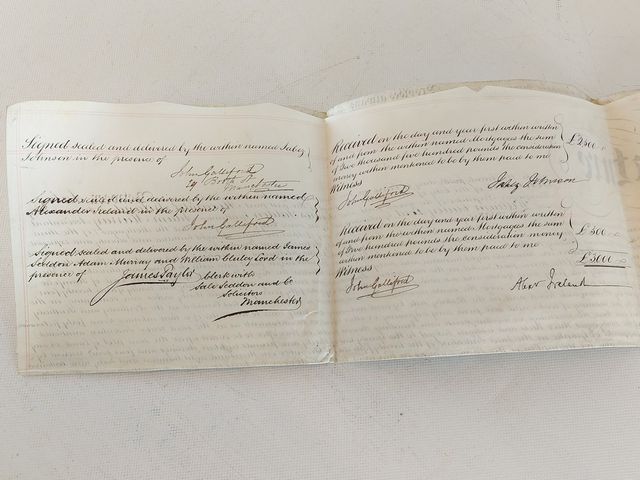 Signed sealed and delivered by the within named Jabez
Johnson in the presence of
John Galliford
Booth St
Manchester
Signed sealed and delivered by the within named
Alexander Ireland in the presence of
John Galliford
Signed sealed and delivered by the within named James
Seddon Adam Murray and William Lord in the
presence of James Taylor Clerk with
Sale Seddon and Co
Solicitors
Manchester
Received on the day and year first within written
of and from the within named Mortgagees the sum
of Two thousand five hundred pounds the consideration
money within mentioned to be by them paid to me
£2500
Witness
John Galliford
Jabez Johnson
Received on the day and year first within written
of and from the within named Mortgagees the sum
of Five hundred pounds the consideration money
within mentioned to be by them paid to me
£500
£3000
Witness
John Galliford
Alexr Ireland